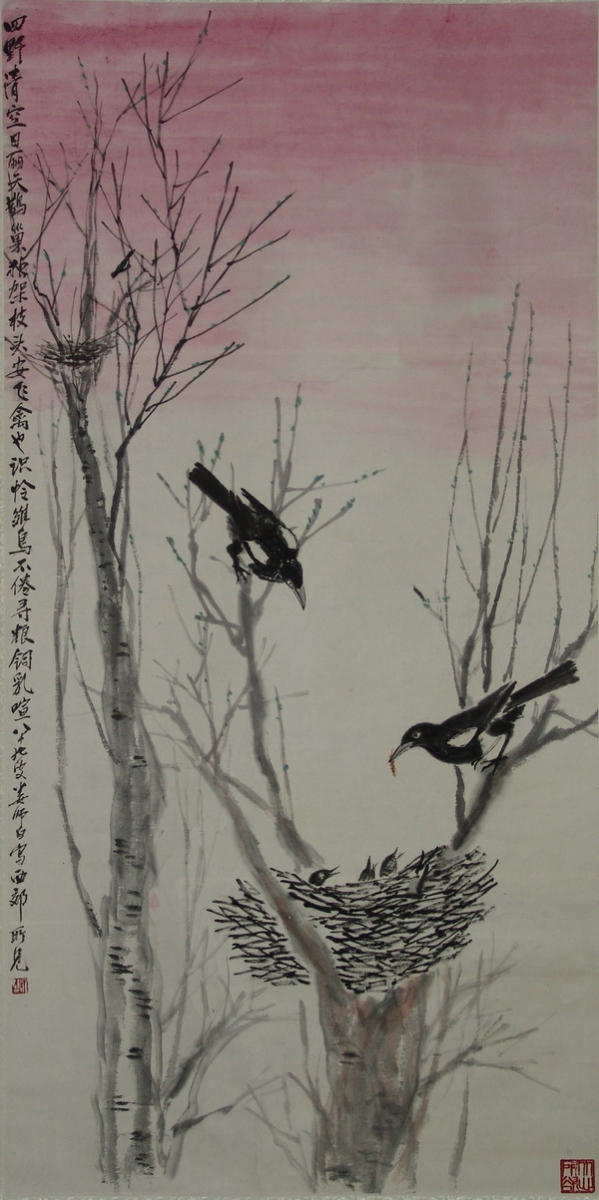 四野清空日丽天鹊巢稳架枝头安飞禽也识怜雏鸟不倦寻粮饲乳喧八十叟娄师白写西郊所见